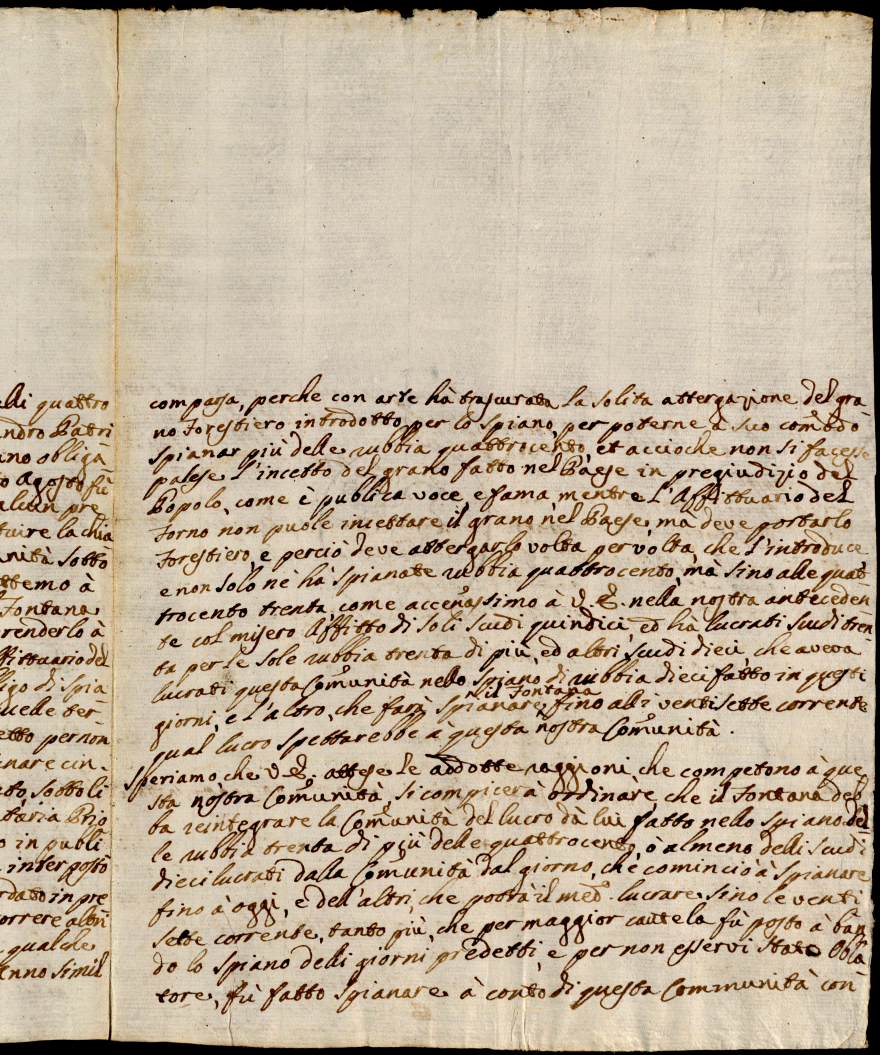 elli quattro
andro Patri
ano obliga
o Agosto fù
alcun pre
tuire la chia
anità sotto
ttemo à
Fontana
renderlo à
ffittuario del
ligo di spia
ucelle ter-
etto per non
inare cin-
ato, sotto li
taria Prio
o in publi
interposto
rdato in pre
correre altri
qualche
Anno simil
comparsa, perche con arte hà trascurata la solita attergazione del gra
no Forestiero introdotto per lo spiano, per poterne à suo commodo
spianar più delle rubbia quattrocento, et accioche non si facesse
palese l'incetto del grano fatto nel Paese in pregiudizio del
Popolo, come è publica voce, e fama, mentre l'Affittuario del
Forno non puole incettare il grano nel Paese, ma deve portarlo
Forestiero, e perciò deve attergarlo volta per volta, che l'introduce
e non solo nè hà spianate rubbia quattrocento, mà sino alle quat
trocento trenta, come accennassimo à V. E. nella nostra anteceden
te col misero Affitto di soli scudi quindici, ed hà lucrati scudi tren
ta per le sole rubbia trenta di più, ed altri scudi dieci, che aveva
lucrati questa Comunità nello spiano di rubbia dieci fatto in questi
giorni, e l'altro, che farà spianare il Fontana fino alli ventisette corrente
qual lucro spettarebbe à questa nostra Comunità.
Speriamo che V. E. attese le addotte raggioni, che competono à que
sta nostra Comunità, si compicerà ordinare, che il Fontana deb
ba reintegrare la Comunità del lucro dà lui fatto nello spiano del
le rubbia trenta di più delle quattrocento, ò almeno delli scudi
dieci lucrati dalla Comunità dal giorno, che cominciò à spianare
fino à oggi, e dell'altri, che potrà il med.º lucrare sino le venti
sette corrente, tanto più, che per maggior cautela fù posto à ban
do lo spiano delli giorni predetti, e per non esservi stato Obla
tore, fù fatto spianare à conto di questa Communità con